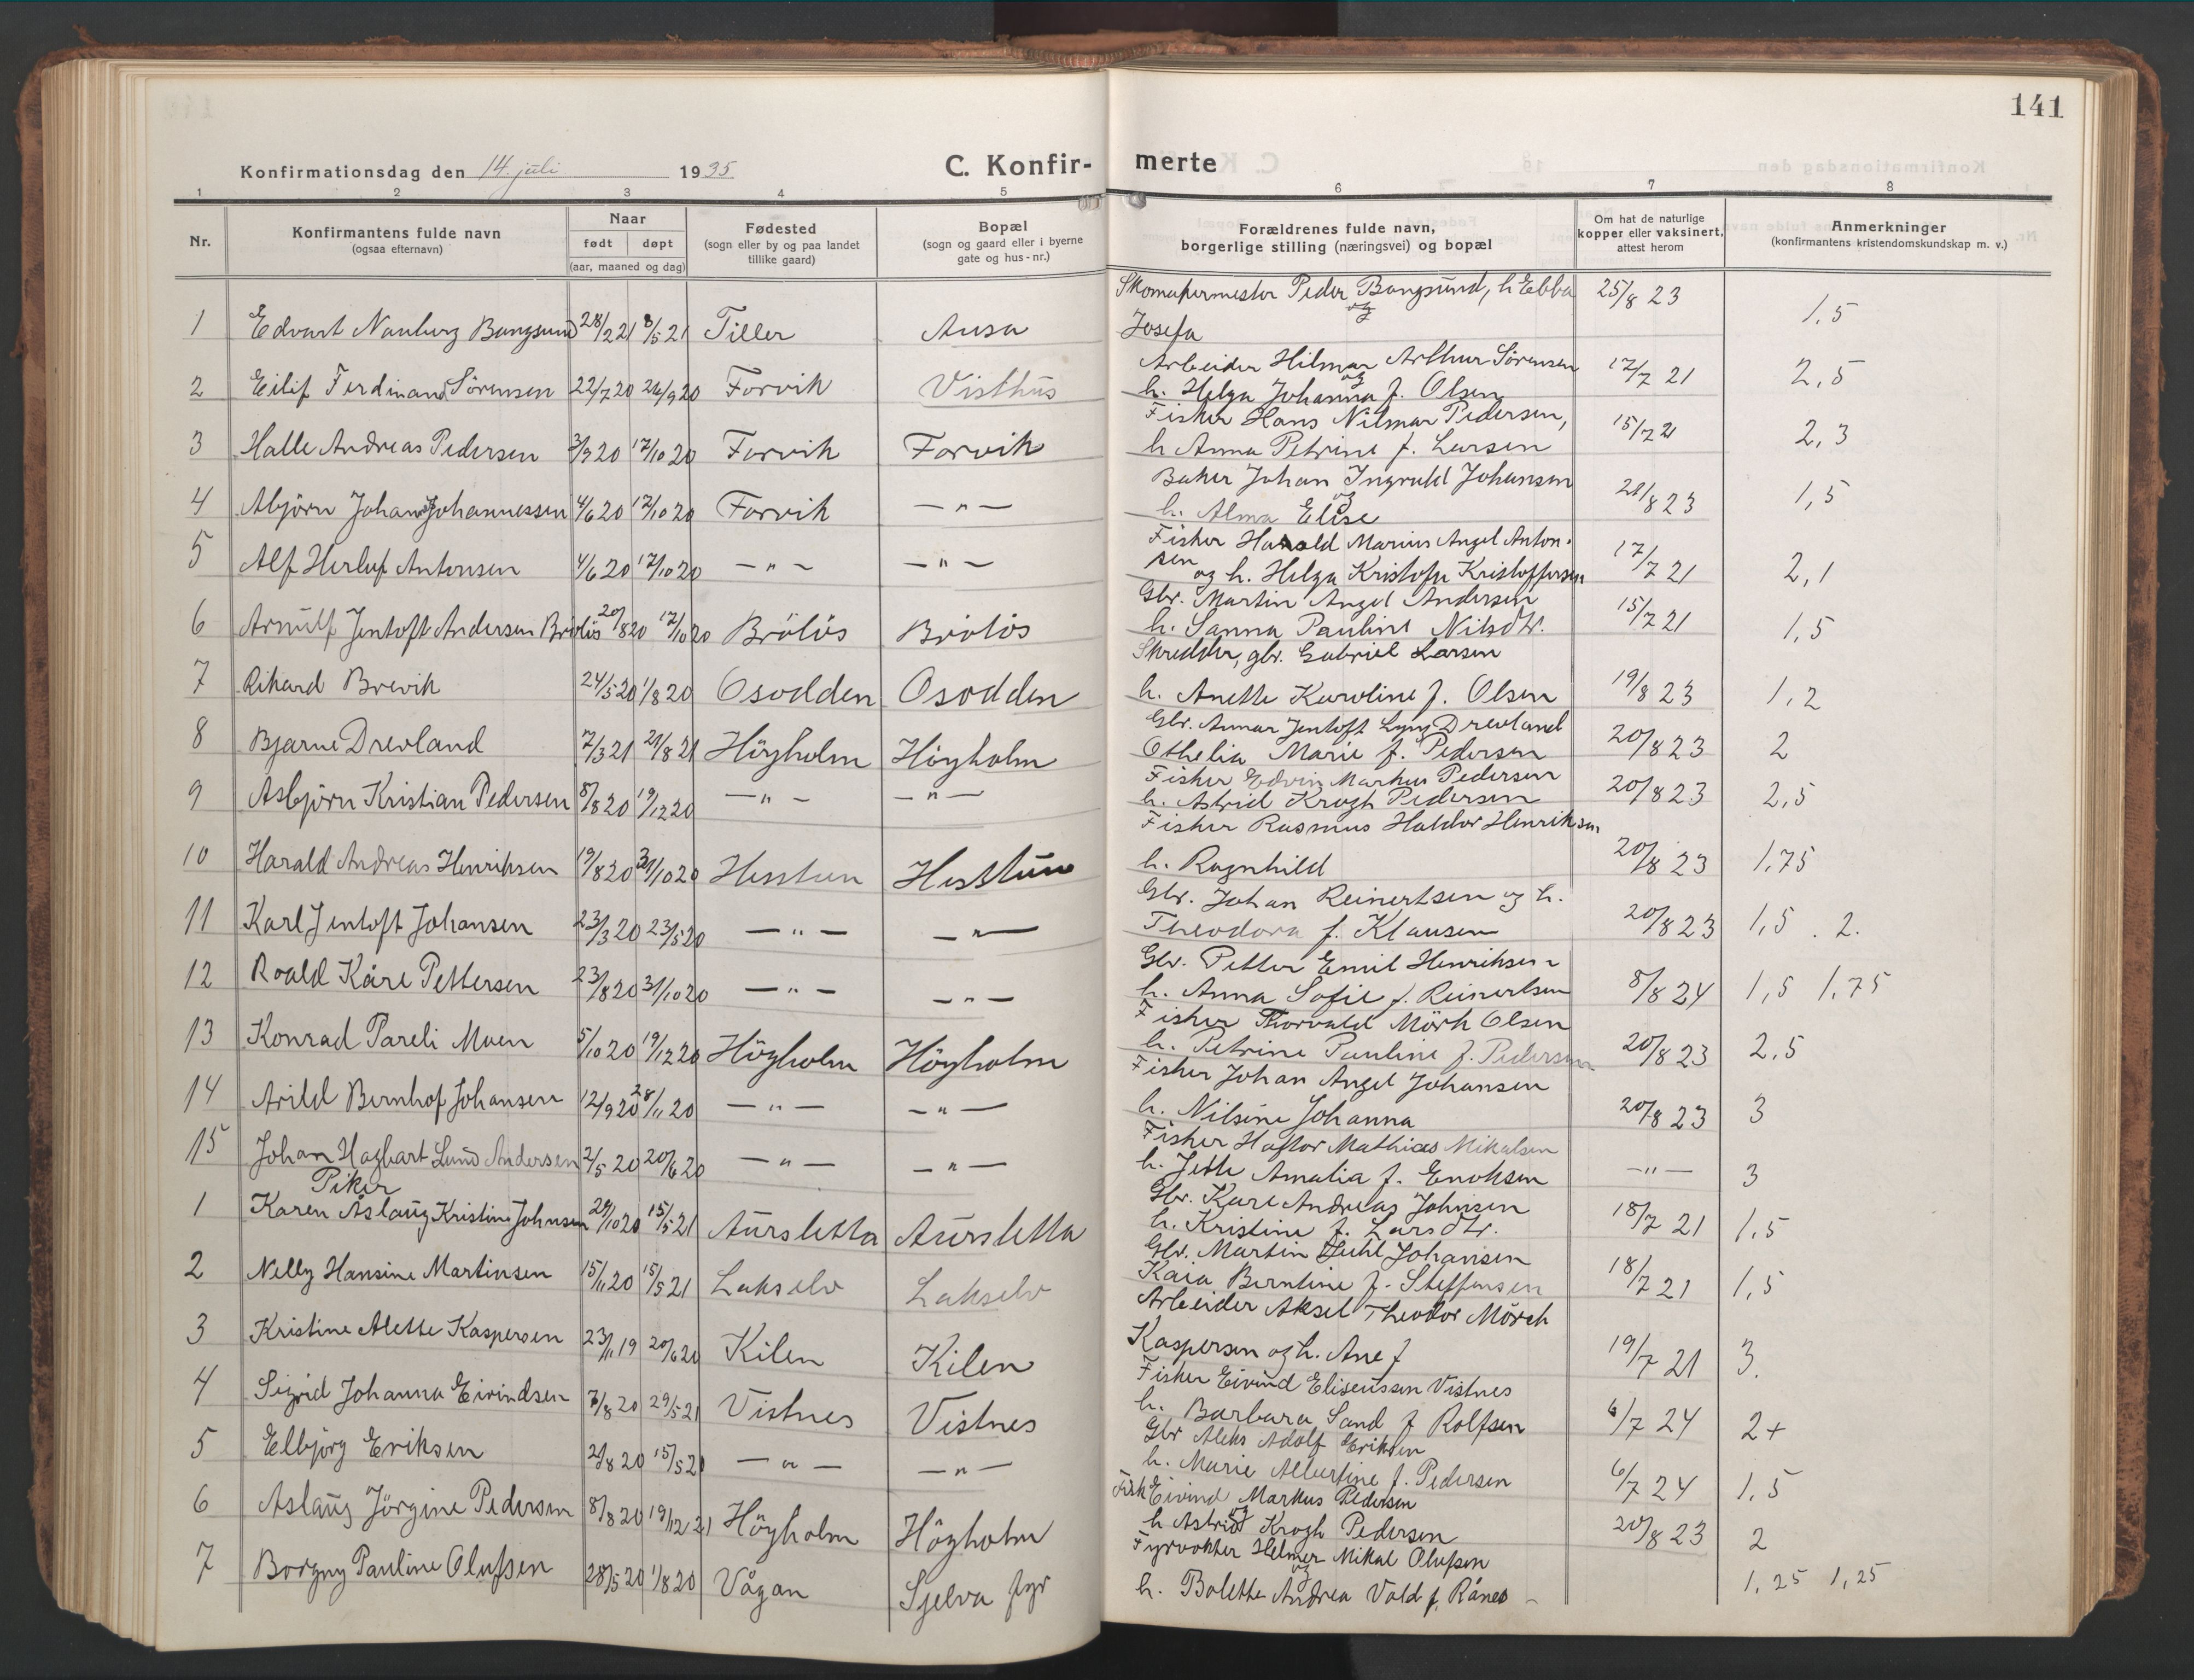 141
Konfirmationsdag den 14. juli 1935
C. Konfir- merte
1 2 3 4 5 6 7 8
Nr.
Konfirmantens fulde navn
(ogsaa efternavn)
Naar
født døpt
(aar, maaned og dag)
Fødested
(sogn eller by og paa landet
tillike gaard)
Bopæl
(sogn og gaard eller i byerne
gate og hus-nr.)
Forældrenes fulde navn,
borgerlige stilling (næringsvei) og bopæl
Om hat de naturlige
kopper eller vaksinert,
attest herom
Anmerkninger
(konfirmantens kristendomskundskap m. v.)
Skomakermester Peder Bangsund, h Ebba 25/8 23
og
1 Edvart Nauberg Bangsund 28/2 21 8/5 21 Tiller Ausa Josefa 1,5
Arbeider Hilmar Arthur Sörensen 17/7 21
og
2 Eilif Ferdinand Sörensen 22/7 20 26/9 20 Forvik Visthus h. Helga Johanna f. Olsen 2,5
Fisker Hans Nilmar Pedersen, 15/7 21
3 Halle Andreas Pedersen 3/9 20 17/10 20 Forvik Forvik h Anna Petrine f. Larsen 2,3
Baker Johan Ingvald Johansen
og
4 Abjörn Johan Johannessen 4/6 20 17/10 20 Forvik — " — h. Alma Elise 28/8 23 1,5
Fisker Harald Marius Angel Anton-
sen
5 Alf Herluf Antonsen 4/6 20 17/10 20 — " — — " — og h. Helga Kristofa Kristoffersen 17/7 21 2,1
Gbr. Martin Angel Andersen
6 Arnulf Jentoft Andersen Brölös 20/8 20 17/10 20 Brölös Brölös h. Sanna Pauline Nilsdtr. 15/7 21 1,5
Skredder, gbr. Gabriel Larsen
7 Rikard Brevik 24/5 20 1/8 20 Osodden Osodden h. Anette Karoline f. Olsen 19/8 23 1,2
Gbr. Annar Jentoft Lyng Drevland
8 Bjarne Drevland 7/3 21 21/8 21 Höyholm Höyholm Othelia Marie f. Pedersen 20/8 23 2
Fisker Edvin Markus Pedersen
9 Asbjörn Kristian Pedersen 8/8 20 19/12 20 — " — — " — h. Astrid Krogh Pedersen 20/8 23 2,5
Fisker Rasmus Haldor Henriksen
10 Harald Andreas Henriksen 19/8 20 31/10 20 Hesstun Hesstun h. Ragnhild 20/8 23 1,75
Gbr. Johan Reinertsen og h.
11 Karl Jentoft Johansen 23/3 20 23/5 20 — " — — " — Theodora f. Klausen 20/8 23 1,5 . 2.
Gbr. Petter Emil Henriksen
12 Roald Kåre Pettersen 23/8 20 31/10 20 — " — — " — h. Anna Sofie f. Reinertsen 8/8 24 1,5 1,75
Fisker Thorvald Mörk Olsen
13 Konrad Pareli Moen 5/10 20 19/12 20 Höyholm Höyholm h. Petrine Pauline f. Pedersen 20/8 23 2,5
Fisker Johan Angel Johansen
14 Arild Bernhof Johansen 12/9 20 28/11 20 — " — — " — h. Nilsine Johanna 20/8 23 3
Fisker Haftor Mathias Mikalsen
15 Johan Hagbart Lund Andersen 2/5 20 20/6 20 — " — — " — h. Jette Amalia f. Enoksen — " — 3
Piker
Gbr. Kare Andreas Johnsen
1 Karen Åslaug Kristine Johnsen 29/10 20 15/5 21 Aursletta Aursletta h. Kristine f. Larsdtr. 18/7 21 1,5
Gbr. Martin Juhl Johansen
2 Nelly Hansine Martinsen 15/11 20 15/5 21 Lakselv Lakselv Kaia Berntine f. Steffensen 18/7 21 1,5
Arbeider Aksel Theodor Mörch
3 Kristine Alette Kaspersen 23/11 19 20/6 20 Kilen Kilen Kaspersen og h. Ane f 19/7 21 3.
Fisker Eivind Eliseussen Vistnes
4 Sigrid Johanna Eivindsen 7/8 20 29/5 21 Vistnes Vistnes h. Barbara Sand f Rolfsen 6/7 24 2+
Gbr Aleks Adolf Eriksen
5 Elbjörg Eriksen 21/8 20 15/5 20 — " — — " — h. Marie Albertine f. Pedersen 6/7 24 1.5
Fisk Eivind Markus Pedersen
og
6 Aslaug Jörgine Pedersen 8/8 20 19/12 21 Höyholm Höyholm h Astrid Krogh Pedersen 20/8 23 2
Fyrvokter Helmer Mikal Olufsen
og
7 Borgny Pauline Olufsen 28/5 20 1/8 20 Vågan Sjelva fyr h. Bolette Andrea Vold f. Rånes 1,25 1,25